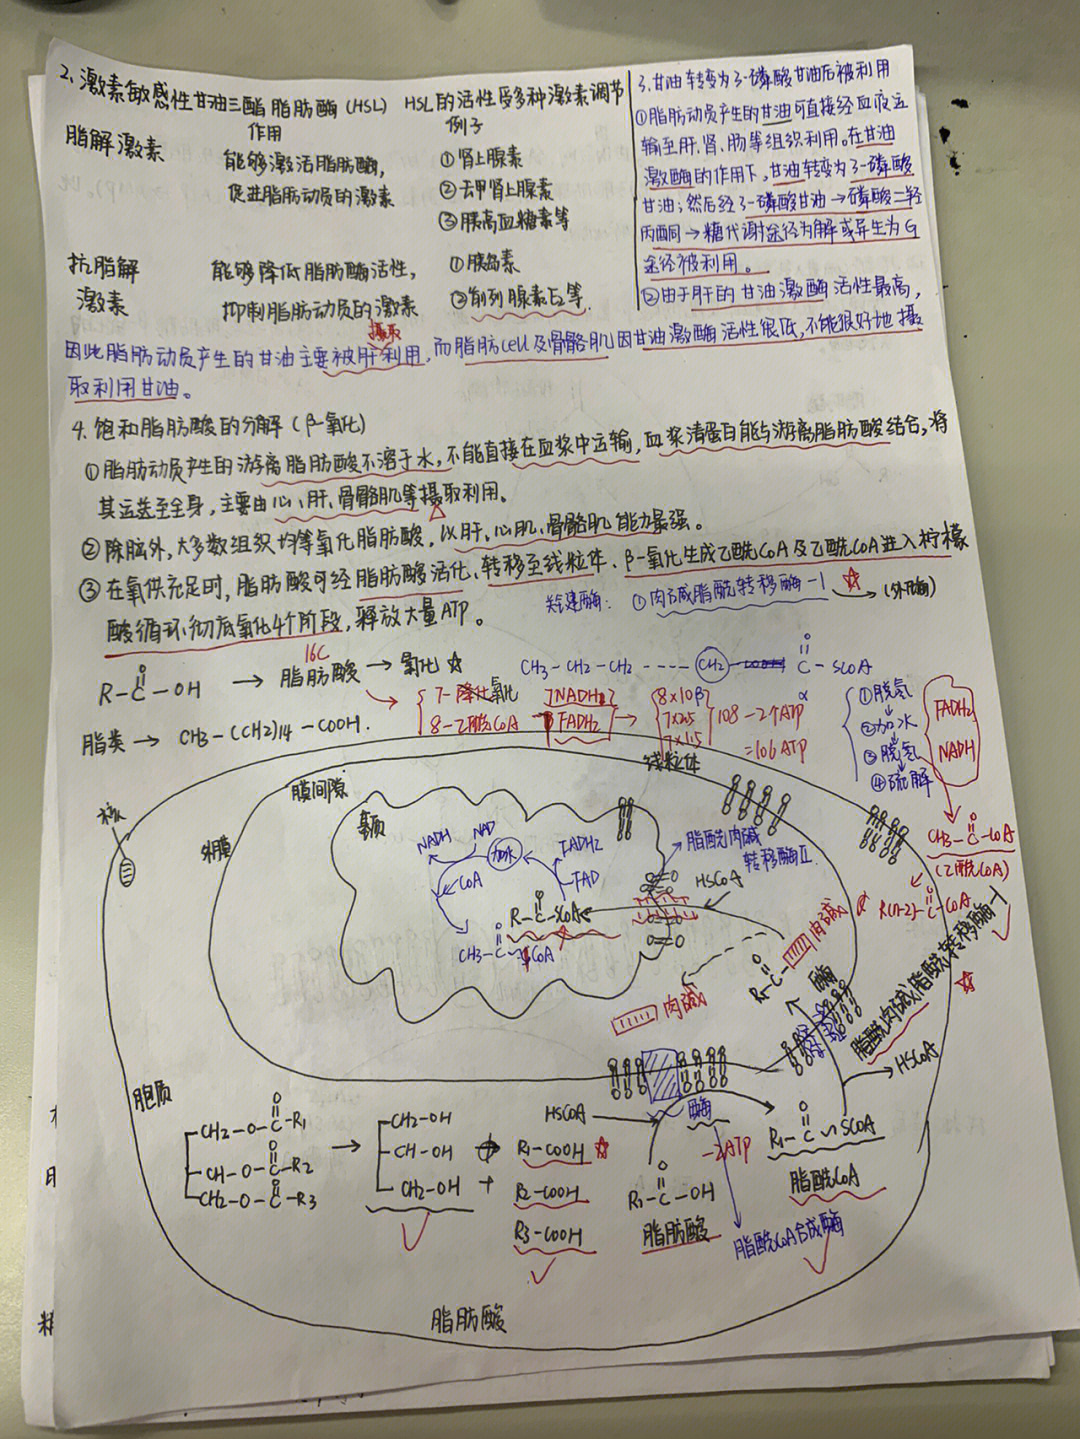 2. 激素敏感性甘油三酯脂肪酶 (HSL) HSL的活性受多种激素调节
作用 例子
脂解激素 能够激活脂肪酶, ①肾上腺素
促进脂肪动员的激素 ②去甲肾上腺素
③胰高血糖素等
抗脂解 能够降低脂肪酶活性, ①胰岛素
激素 抑制脂肪动员的激素 ②前列腺素E2等.
3. 甘油转变为3-磷酸甘油后被利用
①脂肪动员产生的甘油可直接经血液运
输至肝、肾、肠等组织利用。在甘油
激酶的作用下, 甘油转变为3-磷酸
甘油; 然后经3-磷酸甘油→磷酸二羟
丙酮→糖代谢途径为解或异生为G
途径被利用。
②由于肝的甘油激酶活性最高,
摄取
因此脂肪动员产生的甘油主要被肝利用, 而脂肪cell及骨骼肌因甘油激酶活性很低, 不能很好地摄
取利用甘油。
4. 饱和脂肪酸的分解 (β-氧化)
①脂肪动员产生的游离脂肪酸不溶于水, 不能直接在血浆中运输, 血浆清蛋白能与游离脂肪酸结合, 将
其运送至全身, 主要由心、肝、骨骼肌等摄取利用。
②除脑外, 大多数组织均等氧化脂肪酸, 以肝、心肌、骨骼肌能力最强。
③在氧供充足时, 脂肪酸可经脂肪酸活化、转移至线粒体、β-氧化生成乙酰CoA及乙酰CoA进入柠檬
酸循环彻底氧化4个阶段, 释放大量ATP。
关键酶: ①肉碱脂酰转移酶-1 ☆ → (外膜)
16C
R-C-OH → 脂肪酸 → 氧化 ☆
O
CH3-CH2-CH2 ---- CH2 C-SCOA
O
α
7-降解氧化 7NADH2
8-乙酰CoA 7FADH2 →
8×10
7×2.5
7×1.5
108-2个ATP
=106ATP
β
①脱氢
②加水
③脱氢
④硫解
FADH2
NADH
脂类 → CH3-(CH2)14-COOH.
CH3-C-CoA
O
(乙酰CoA)
R(n-2)-C-CoA
O
线粒体
核
外膜
膜间隙
基质
NADH
NAD
加水
FADH2
FAD
CoA
R-C-SCOA
O
CH3-C~SCoA
O
脂酰肉碱
转移酶Ⅱ.
HSCoA
肉碱
R1-C-
O
肉碱
酶
脂酰肉碱脂酰转移酶-1 ☆
HSCoA
胞质
CH2-O-C-R1
O
CH-O-C-R2
O
CH2-O-C-R3
O
→
CH2-OH
CH-OH +
CH2-OH +
R1-COOH ☆
R2-COOH
R3-COOH
HSCOA
酶
-2ATP
R1-C-OH
O
脂肪酸
R1-C~SCOA
O
脂酰CoA
脂酰CoA合成酶
脂肪酸